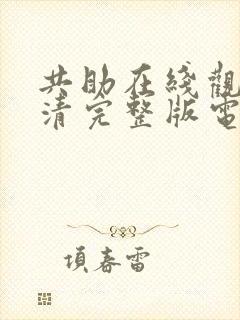 共助在綫觀
清完整版電
項春雷